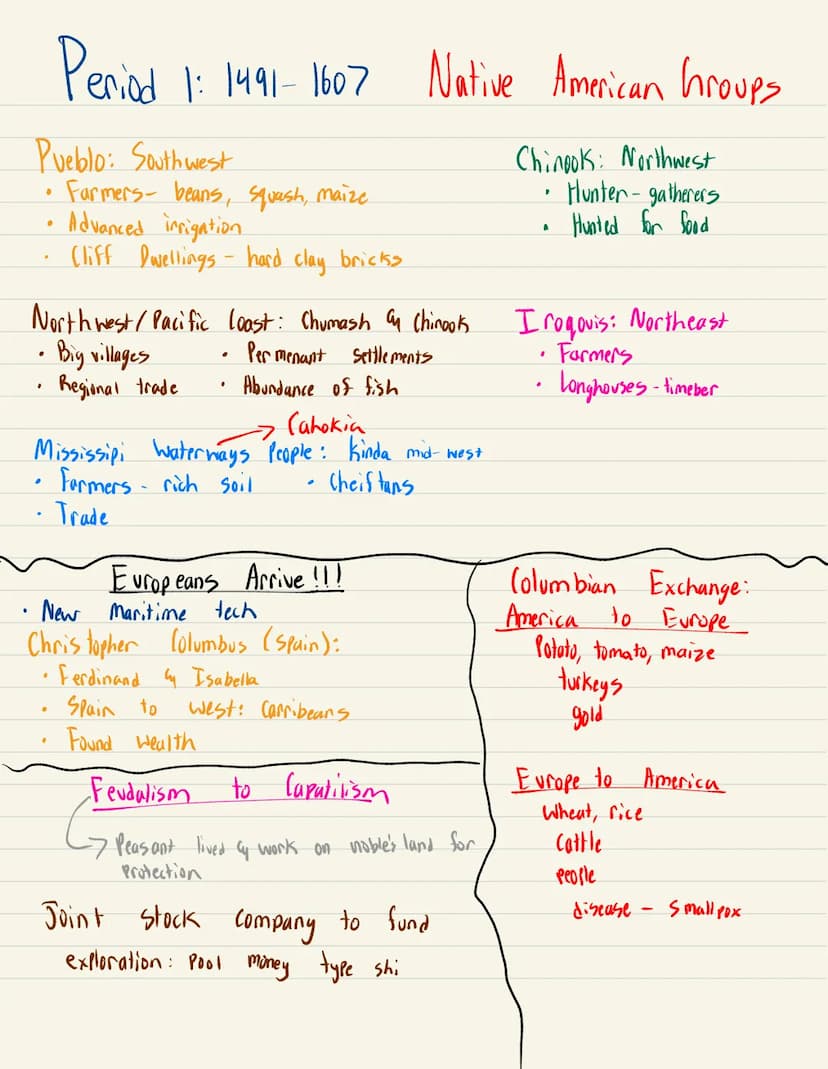 Period 1: 1491-1607 Native American Groups
Pueblo: Southwest
• Farmers- beans, squash, maize
• Advanced irrigation
• Cliff Dwellings - hard clay bricks
Chinook: Northwest
• Hunter-gatherers
• Hunted for food
Northwest/Pacific Coast: Chumash & Chinook
• Big villages • Permenant Settlements
• Regional trade • Abundance of fish
Iroqouis: Northeast
• Farmers
• Longhouses - timeber
→ Cahokia
Mississipi Waterways People: Kinda mid-west
• Farmers - rich soil • Cheiftans
• Trade
Europeans Arrive!!!
• New maritime tech
Christopher Columbus (Spain):
• Ferdinand & Isabella
• Spain to West: Carribeans
• Found wealth
Feudalism to Capatilism
→ Peasant lived & work on noble's land for
protection
Joint stock company to fund
exploration: Pool money type shi
Columbian Exchange:
America to Europe
Potato, tomato, maize
turkeys
gold
Europe to America
Wheat, rice
Cattle
people
disease - Smallpox